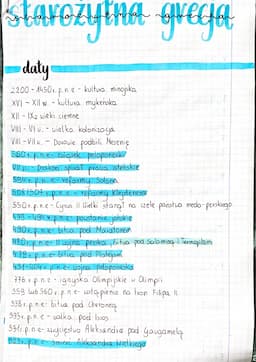 starożytna grecja
daty
2200 - 1450 r. p.n.e - kultura minojska
XVI - XII w - kultura mykeńska
XII - IX w wieki ciemne
VIII - VI w. - wielka kolonizacja
VIII - VII w. - Dorowie podbili Mesenię
560 r. p.n.e. związek peloponeski
VII p. - Drakon spisał prawa ateńskie
594 r. p.n.e - reformy Solona
508/507 r. p.n.e. - reformy Klejstenesa
550 r. p.n.e - Cyrus II Wielki stanął na czele państwa medo-perskiego
499 - 494 r. p.n.e. powstanie jońskie
490 r. p.n.e. bitwa pod Maratonem
480 r. p.n.e - II wojna perska, bitwa pod Salaminą i Termopilami
479 r. p.n.e - bitwa pod Platejami
431 - r. p.n.e - wojna peloponeska
776 r. p.n.e - igrzyska Olimpijskie w Olimpii
359 lub 360 r. p.n.e - wstąpienie na tron Filipa II
338 r. p.n.e - bitwa pod Cheroneą
333 r. p.n.e - walka pod Issos
331 r. p.n.e - zwycięstwo Aleksandra pod Gaugamelą
323 r. p.n.e. śmierć Aleksandra Wielkiego